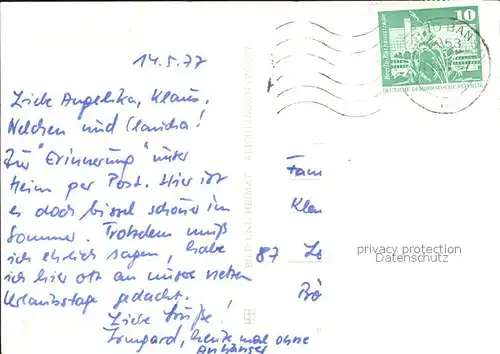 14.5.77
Liebe Angelika, Klaus,
Nelchen und Claudia!
Zur "Erinnerung" unser
Heim per Post. Hier ist
es doch bissel schöner im
Sommer. Trotzdem muß
ich ehrlich sagen, habe
ich hier oft an unsere netten
Urlaubstage gedacht.
Liebe Grüße!
Irmgard, heute mal ohne
Anhängsel
BILD UND HEIMAT REICHENBACH
Fam
Klau
87 Lö
Bö
10
Berlin, Rathausstraße
DEUTSCHE DEMOKRATISCHE REPUBLIK
privacy protection
Datenschutz